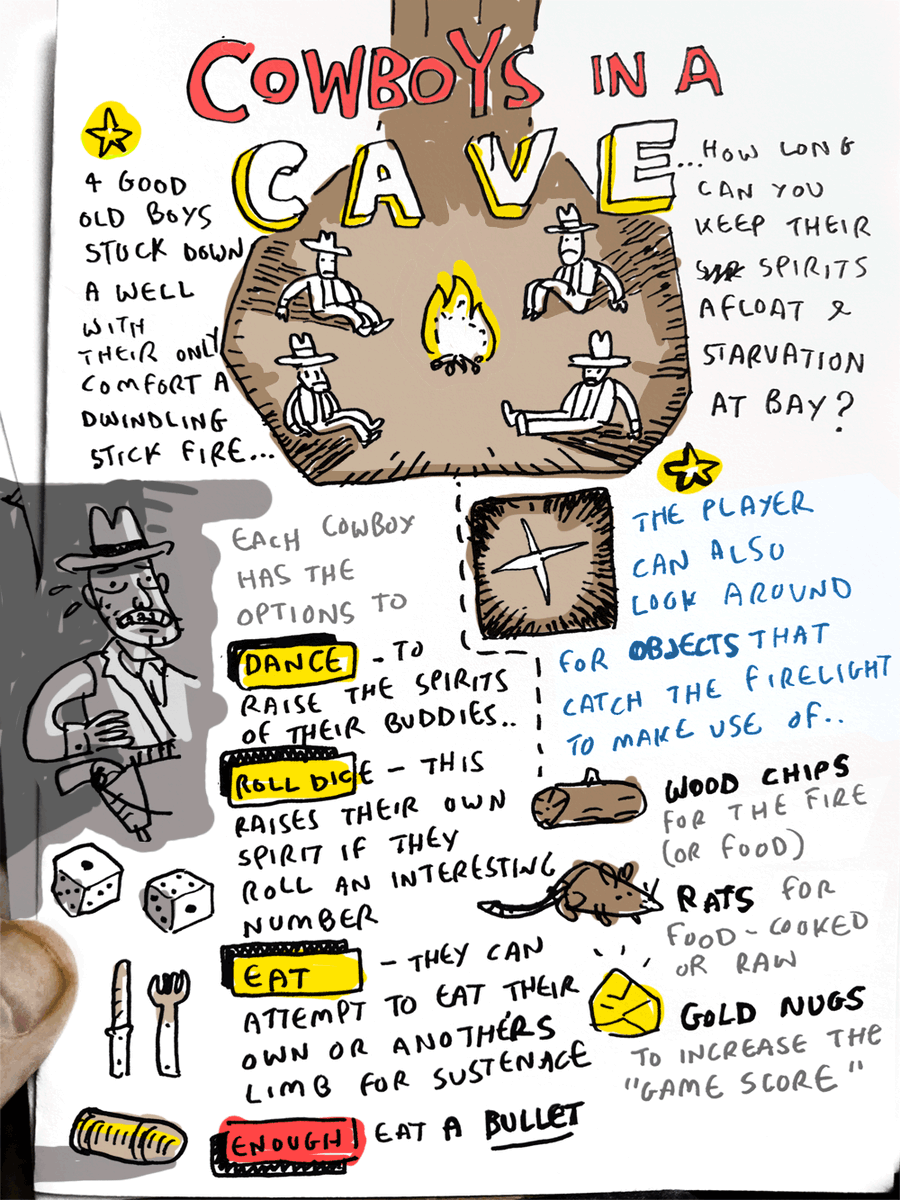 COWBOYS IN A
CAVE
4 GOOD
OLD BOYS
STUCK DOWN
A WELL
WITH
THEIR ONLY
COMFORT A
DWINDLING
STICK FIRE...
...HOW LONG
CAN YOU
KEEP THEIR
SPIRITS
AFLOAT &
STARVATION
AT BAY?
EACH COWBOY
HAS THE
OPTIONS TO
DANCE - TO
RAISE THE SPIRITS
OF THEIR BUDDIES..
ROLL DICE - THIS
RAISES THEIR OWN
SPIRIT IF THEY
ROLL AN INTERESTING
NUMBER
EAT - THEY CAN
ATTEMPT TO EAT THEIR
OWN OR ANOTHERS
LIMB FOR SUSTENACE
ENOUGH EAT A BULLET
THE PLAYER
CAN ALSO
LOOK AROUND
FOR OBJECTS THAT
CATCH THE FIRELIGHT
TO MAKE USE OF..
WOOD CHIPS
FOR THE FIRE
(OR FOOD)
RATS FOR
FOOD - COOKED
OR RAW
GOLD NUGS
TO INCREASE THE
"GAME SCORE"